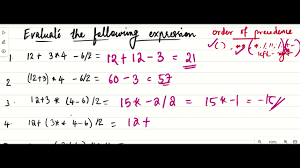 Evaluate the following expression
order of precedence
1. 12 + 3*4 - 6/2 = 12 + 12 - 3 = 21
2. (12+3) * 4 - 6/2 = 60 - 3 = 57
left - right
3. 12+3 * (4-6)/2 = 15* -2/2 = 15*-1 = -15
4. 12+ (3* 4-6)/2 = 12 +